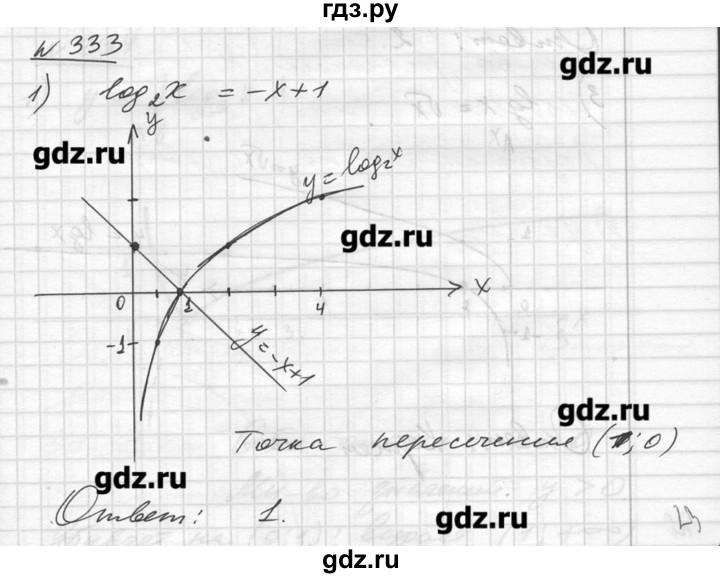 гдз.ру
N 333
1) log₂x = -x+1
y
gdz.ru
gdz.ru
y=log₂x
gdz.ru
x
0
1
4
-1
y=-x+1
gdz.ru
Точка пересечения (1;0)
gdz.ru
Ответ: 1.
gdz.ru
gdz.ru